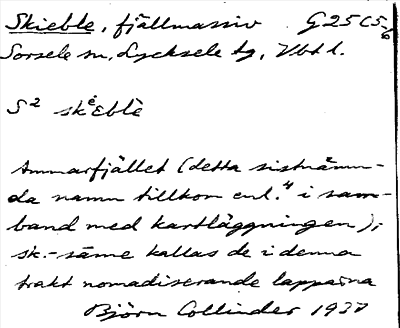 Skieble, fjällmassiv G25C5,6
Sorsele sn, Lycksele tg, Vbtl.
S2 skėEblè
Ammarfjället (detta sistnämn-
da namn tillkom enl. i sam-
band med kartläggningen);
sk.-säme kallas de i denna
trakt nomadiserande lapparna
Björn Collinder 1937